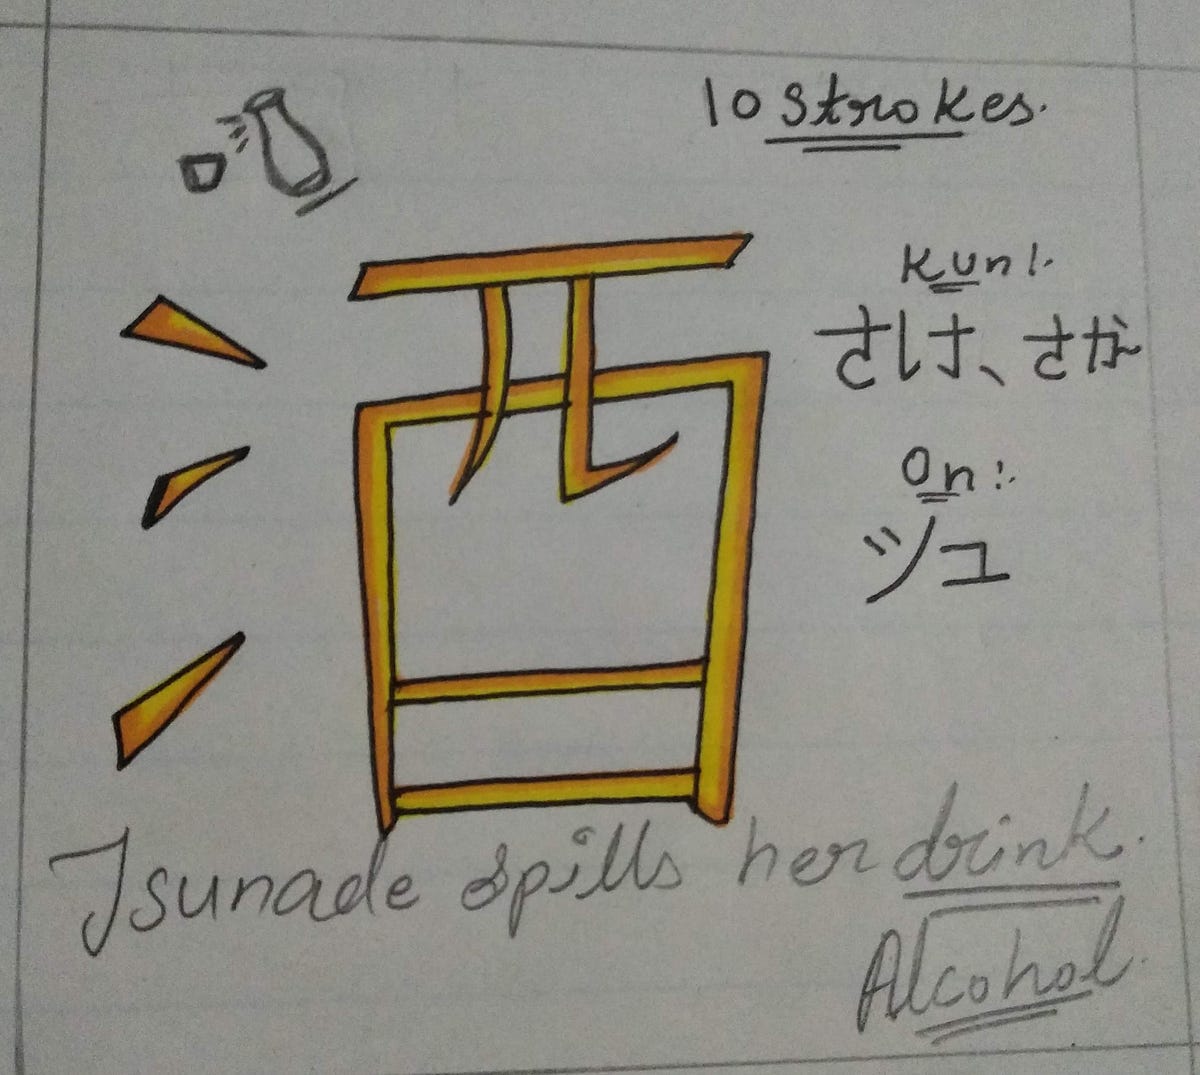 10 Strokes.
Kun:-
さけ、さか
On:-
ツュ
酒
Tsunade spills her drink.
Alcohol.